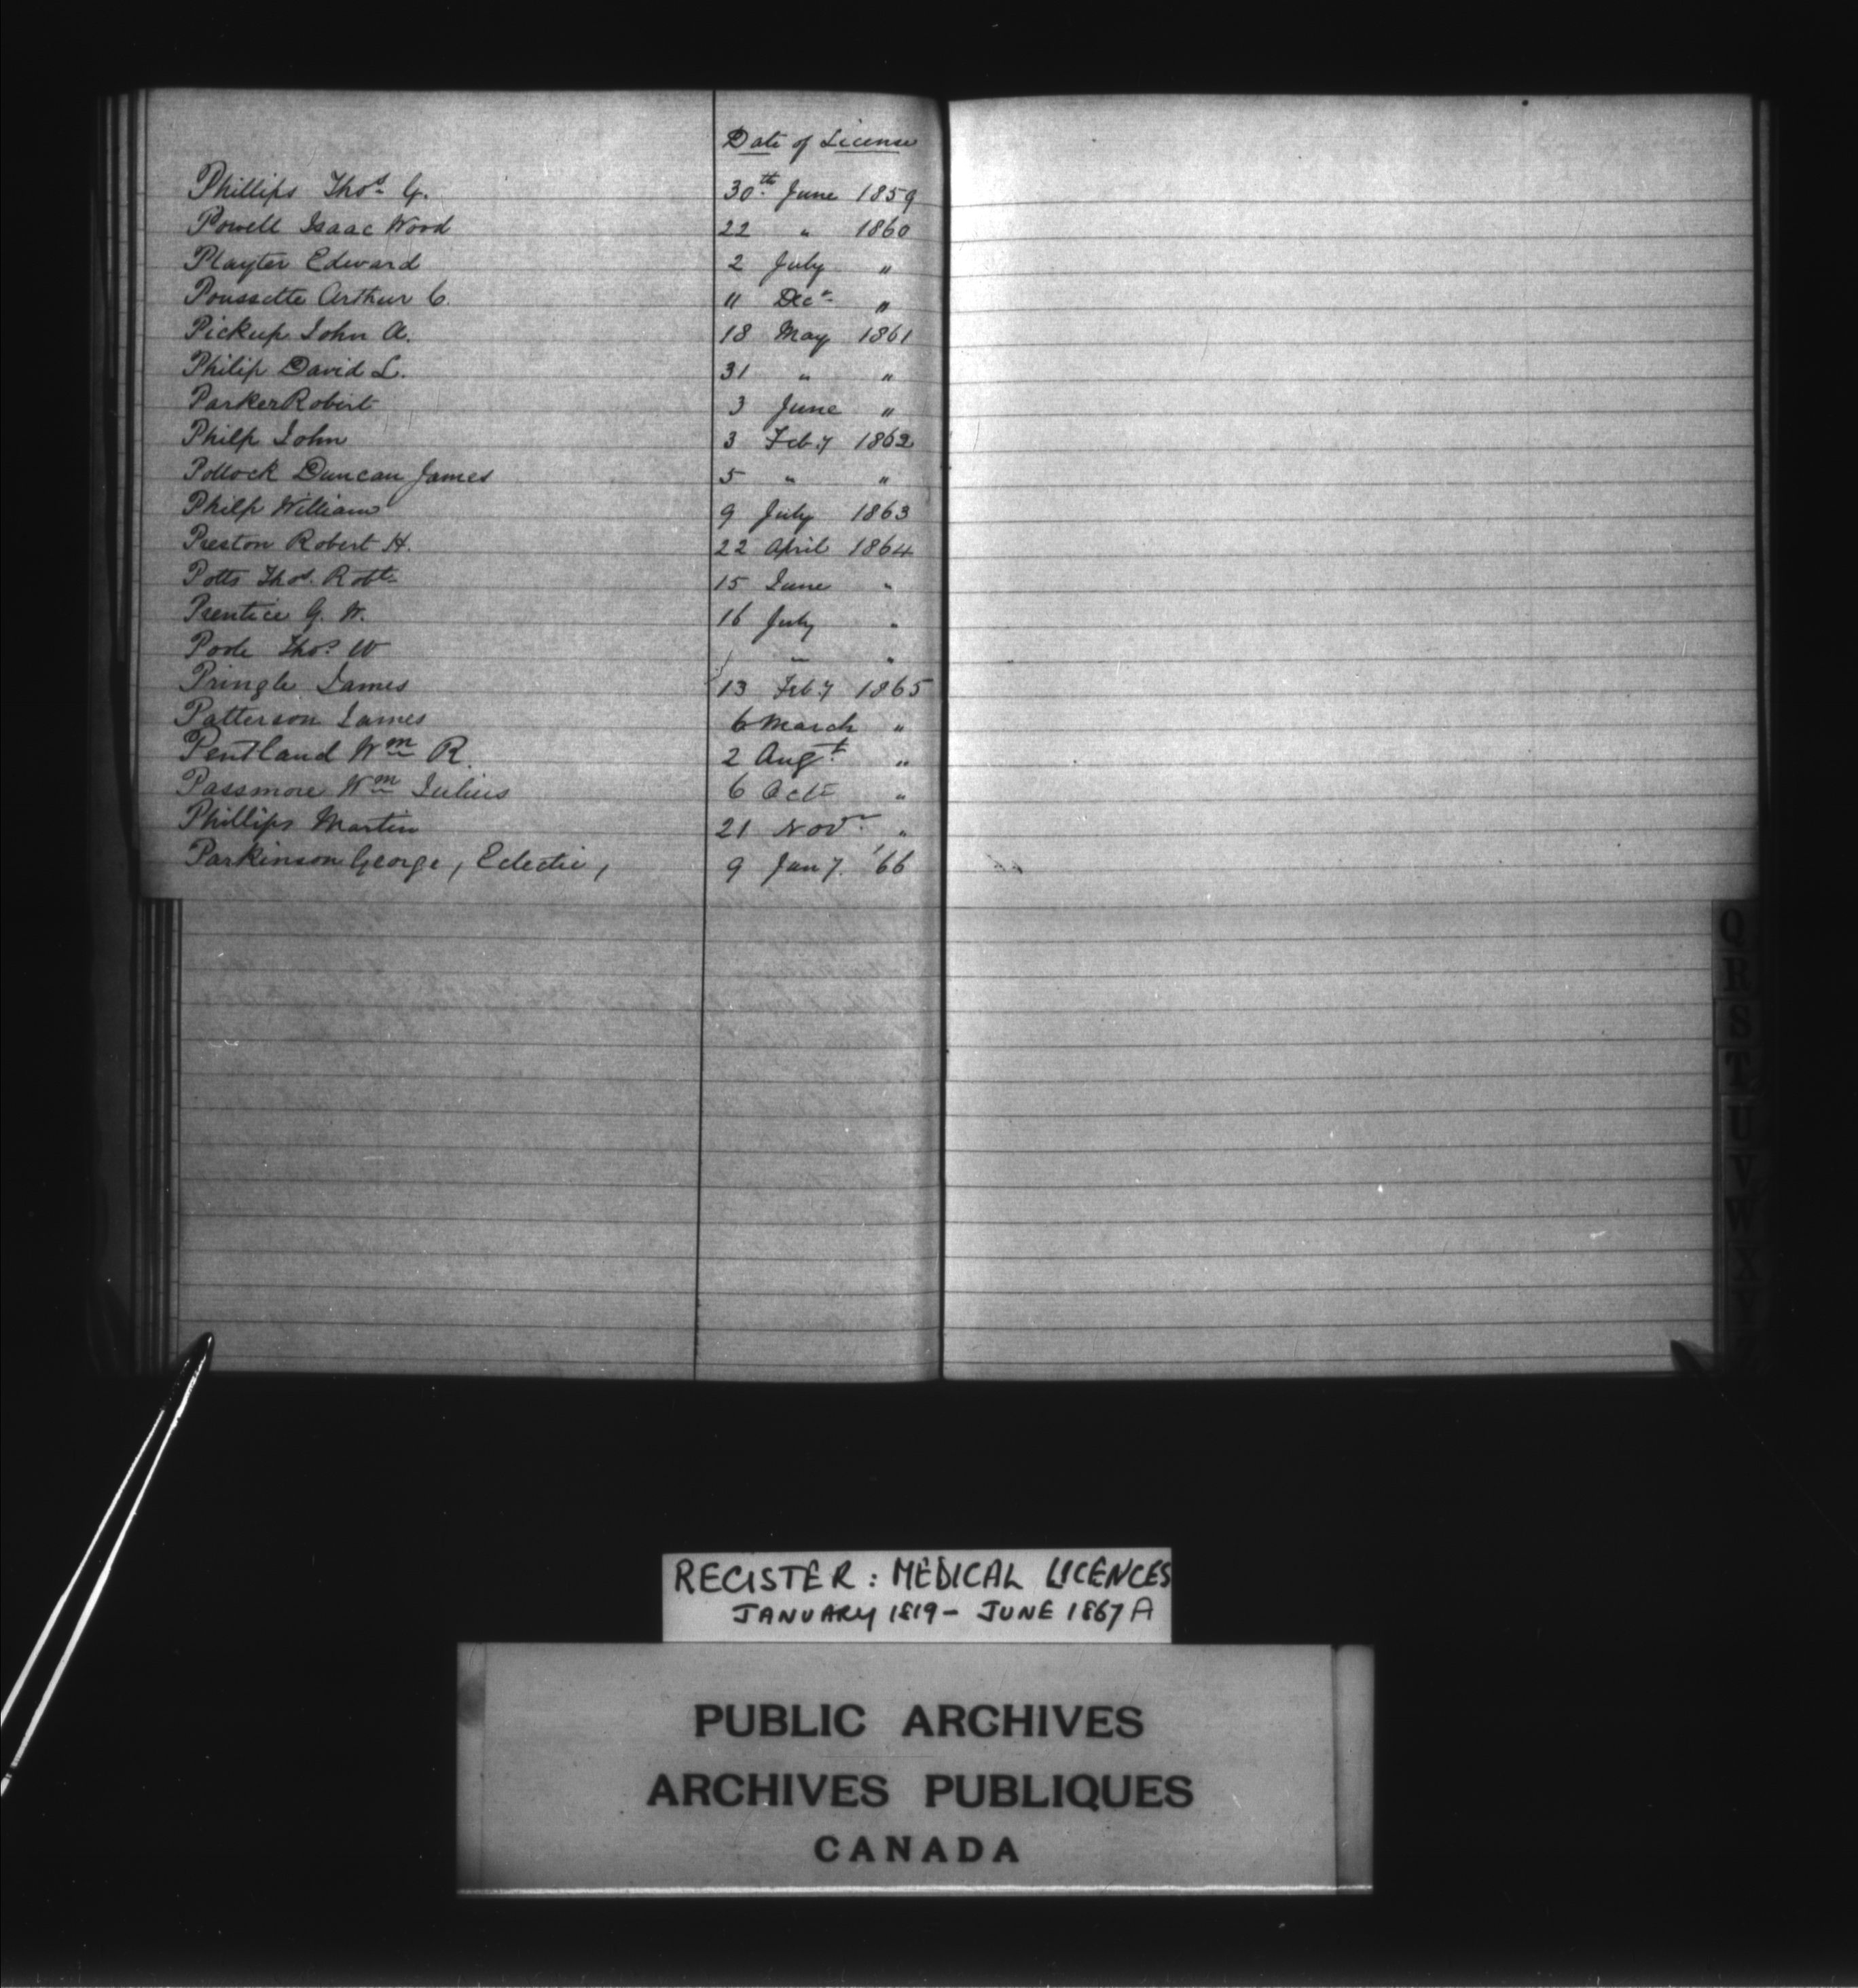 Date of License
Phillips Thos. G. 30th June 1859
Powell Isaac Wood 22 " 1860
Playter Edward 2 July "
Poussette Arthur C. 11 Decr "
Pickup John A. 18 May 1861
Philip David L. 31 " "
Parker Robert 3 June "
Philp John 3 Feby 1862
Pollock Duncan James 5 " "
Philp William 9 July 1863
Preston Robert H. 22 April 1864
Potts Thos. Robt. 15 June "
Prentice G. W. 16 July "
Poole Thos. W " "
Pringle James 13 Feby 1865
Patterson James 6 March "
Pentland Wm R. 2 Augt "
Passmore Wm Julius 6 Oct "
Phillips Martin 21 Novr "
Parkinson George, Eclectic, 9 Jany. '66
Q
R
S
T
U
V
W
X
Y
REGISTER: MEDICAL LICENCES
JANUARY 1819 - JUNE 1867 A
PUBLIC ARCHIVES
ARCHIVES PUBLIQUES
CANADA